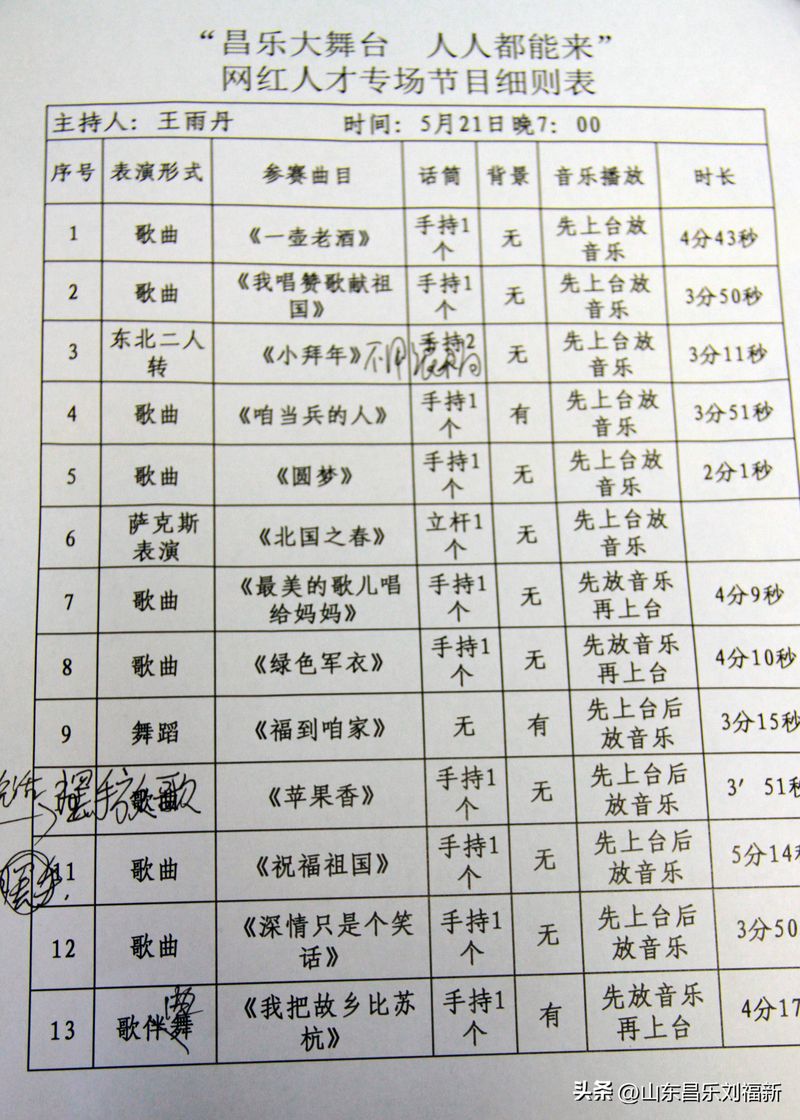 “昌乐大舞台 人人都能来”
网红人才专场节目细则表
主持人：王雨丹 时间：5月21日晚7：00
序号 表演形式 参赛曲目 话筒 背景 音乐播放 时长
1 歌曲 《一壶老酒》 手持1个 无 先上台放音乐 4分43秒
2 歌曲 《我唱赞歌献祖国》 手持1个 无 先上台放音乐 3分50秒
3 东北二人转 《小拜年》 手持2 无 先上台放音乐 3分11秒
4 歌曲 《咱当兵的人》 手持1个 有 先上台放音乐 3分51秒
5 歌曲 《圆梦》 手持1个 无 先上台放音乐 2分1秒
6 萨克斯表演 《北国之春》 立杆1个 无 先上台放音乐
7 歌曲 《最美的歌儿唱给妈妈》 手持1个 无 先放音乐再上台 4分9秒
8 歌曲 《绿色军衣》 手持1个 无 先放音乐再上台 4分10秒
9 舞蹈 《福到咱家》 无 有 先上台后放音乐 3分15秒
歌曲 《苹果香》 手持1个 无 先上台后放音乐 3′51秒
11 歌曲 《祝福祖国》 手持1个 无 先上台后放音乐 5分14秒
12 歌曲 《深情只是个笑话》 手持1个 无 先上台后放音乐 3分50
13 歌伴舞 《我把故乡比苏杭》 手持1个 有 先放音乐再上台 4分17
头条 @山东昌乐刘福新